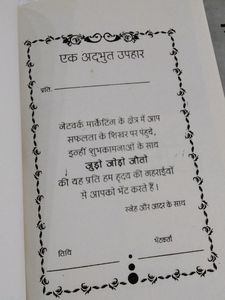 एक अद्भुत उपहार
प्रति
नेटवर्क मार्केटिंग के क्षेत्र में आप
सफलता के शिखर पर पहुंचे,
इन्हीं शुभकामनाओं के साथ
जुड़ो जोड़ो जीतो
की यह प्रति हम हृदय की गहराईयों
से आपको भेंट करते हैं।
स्नेह और आदर के साथ
तिथि
भेंटकर्ता